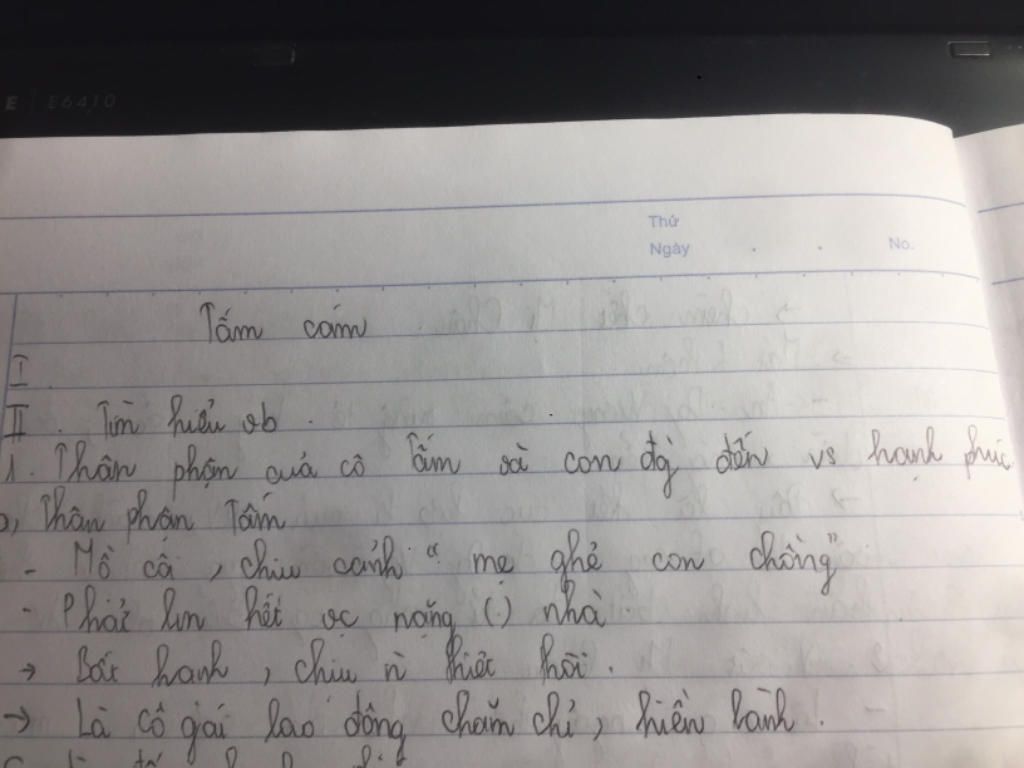 E E6410
Thứ
Ngày . . No.
Tấm cám
I
II. Tìm hiểu vb.
1. Thân phận quả cô Tấm và con đg đến vs hạnh phúc
a, Thân phận Tấm
- Mồ côi, chịu cảnh "mẹ ghẻ con chồng"
- Phải lm hết vc nặng (.) nhà.
→ Bất hạnh, chịu n` thiệt thòi.
→ Là cô gái lao động chăm chỉ, hiền lành.